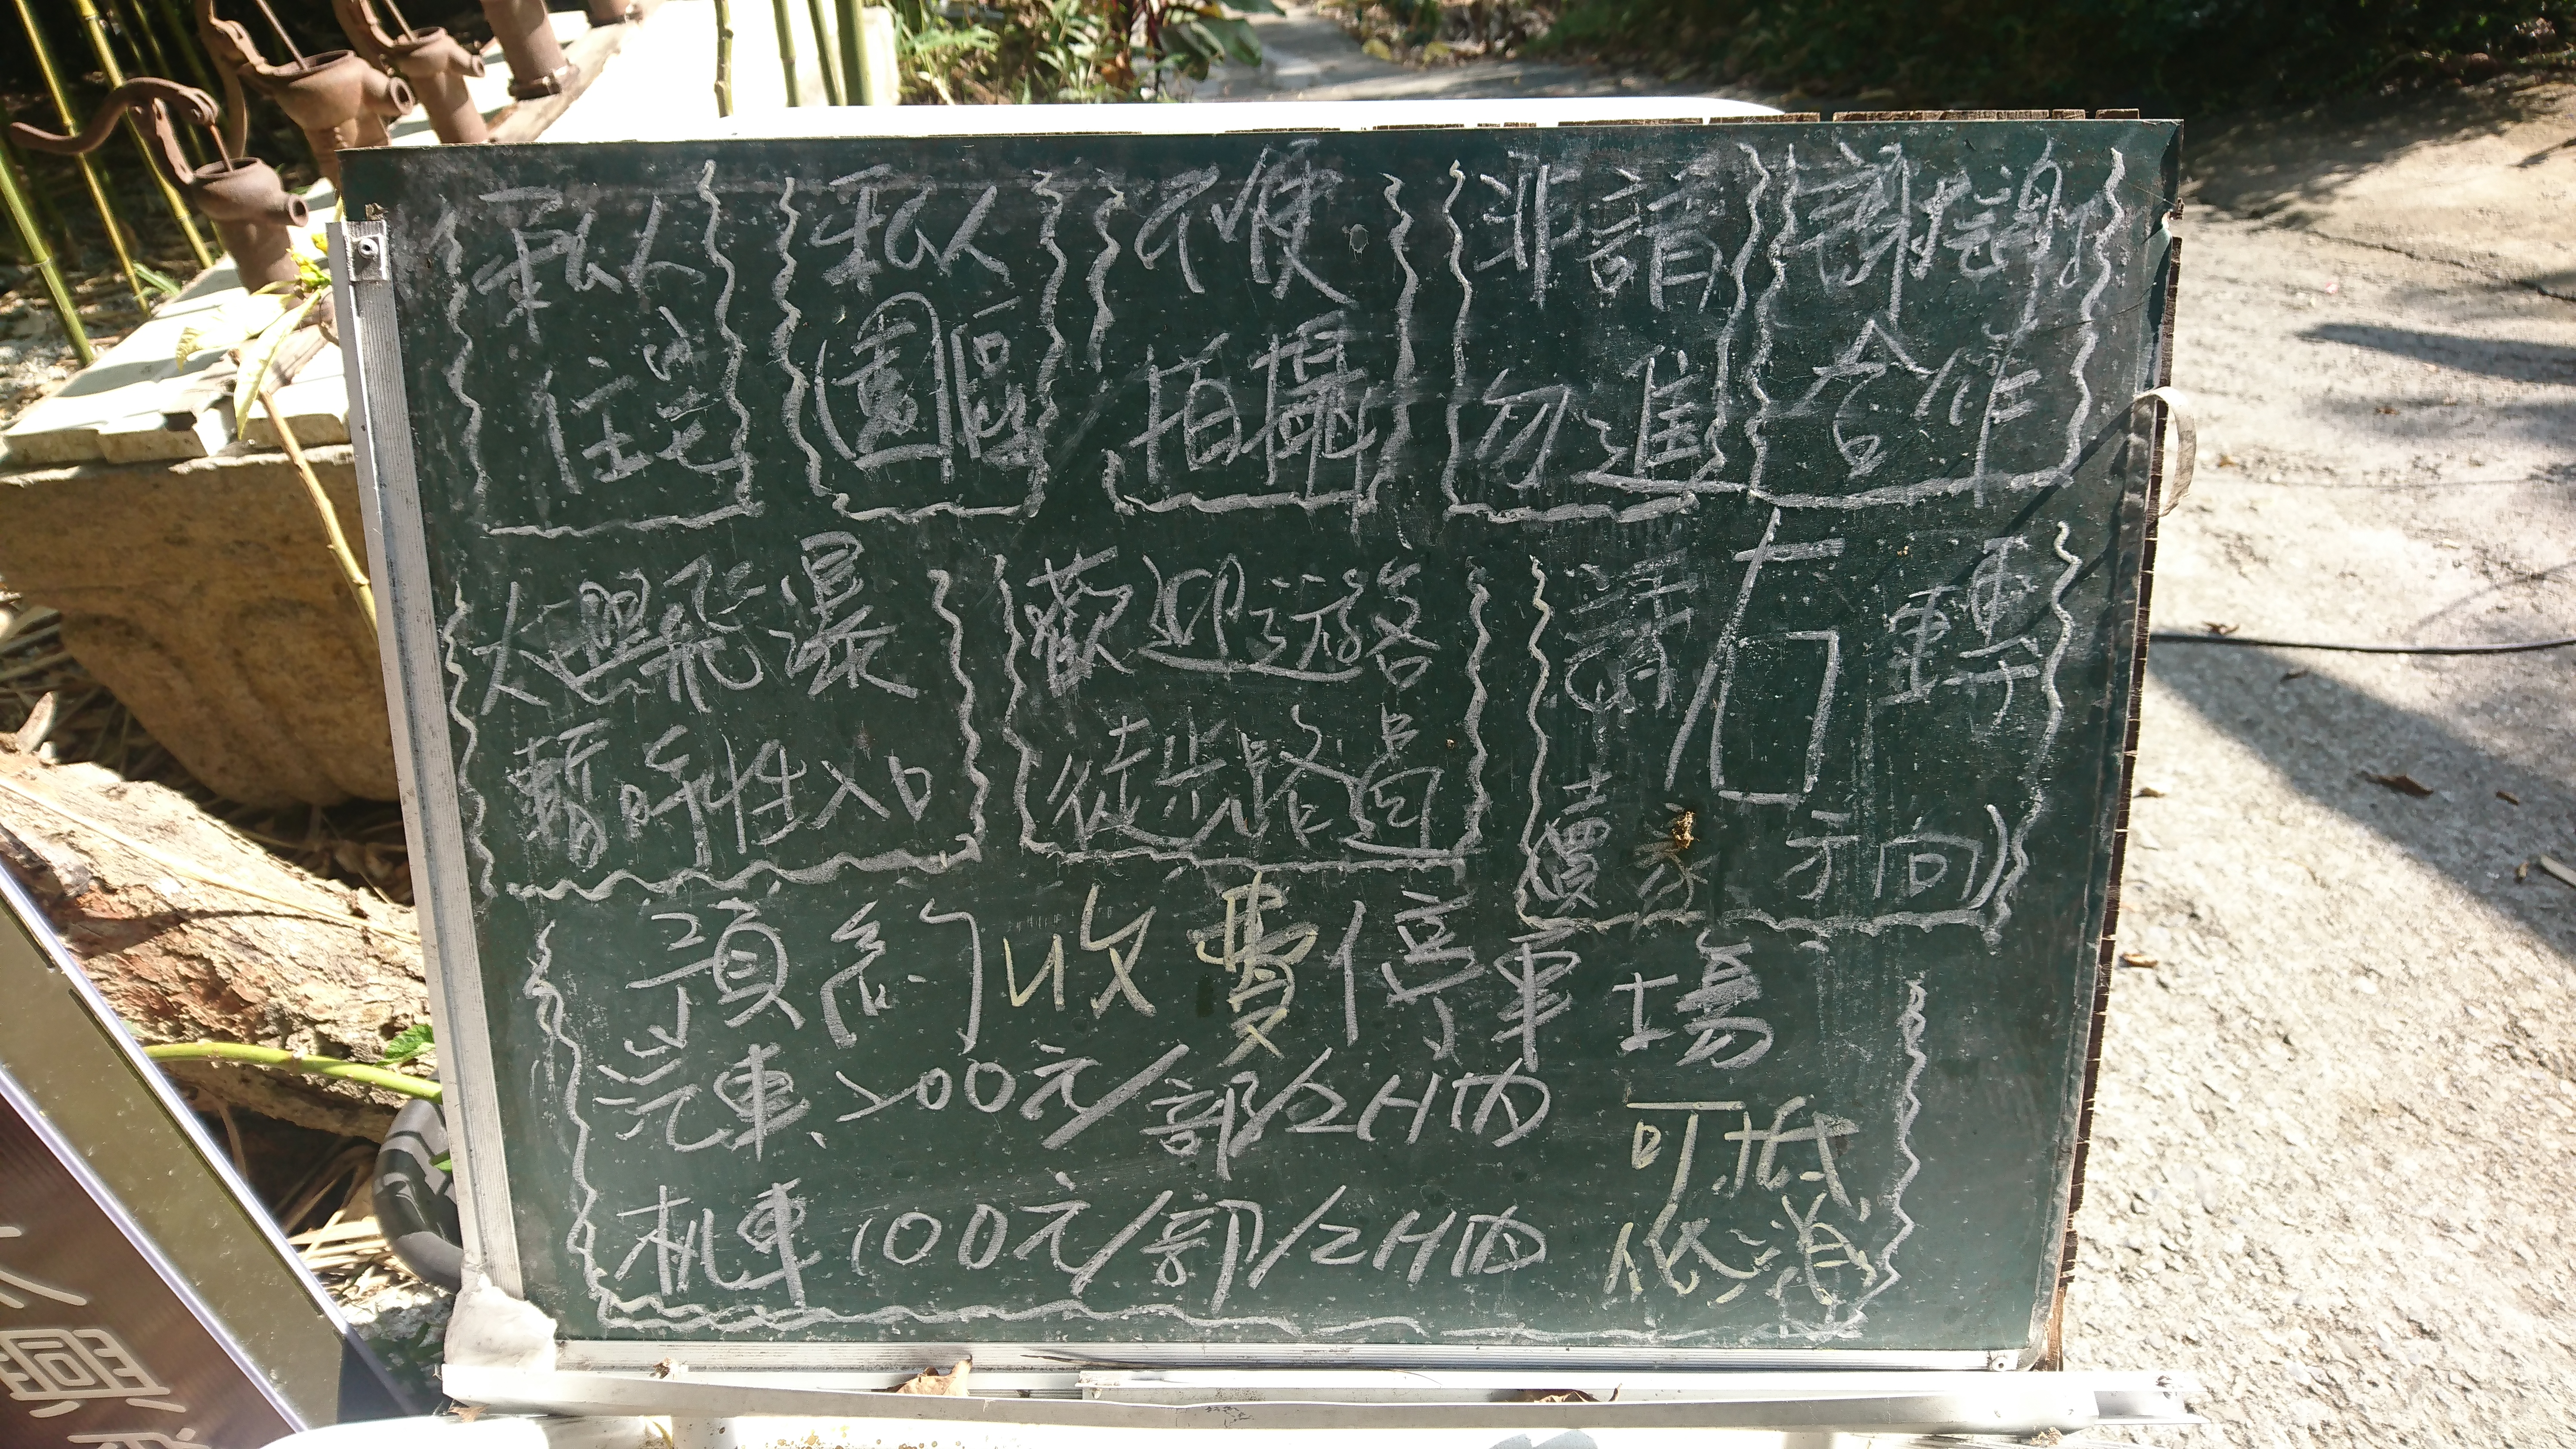 私人
住宅
私人
園區
不便
拍攝
非請
勿進
謝謝
合作
太興飛瀑
暫時性入口
歡迎遊客
徒步路過
請右轉
賣
方向
預約收費停車場
汽車、200元/部/2H内
机車100元/部/2H内
可抵
低消
興